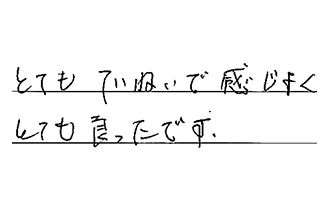 とても ていねいで 感じよく
とても 良ったです.